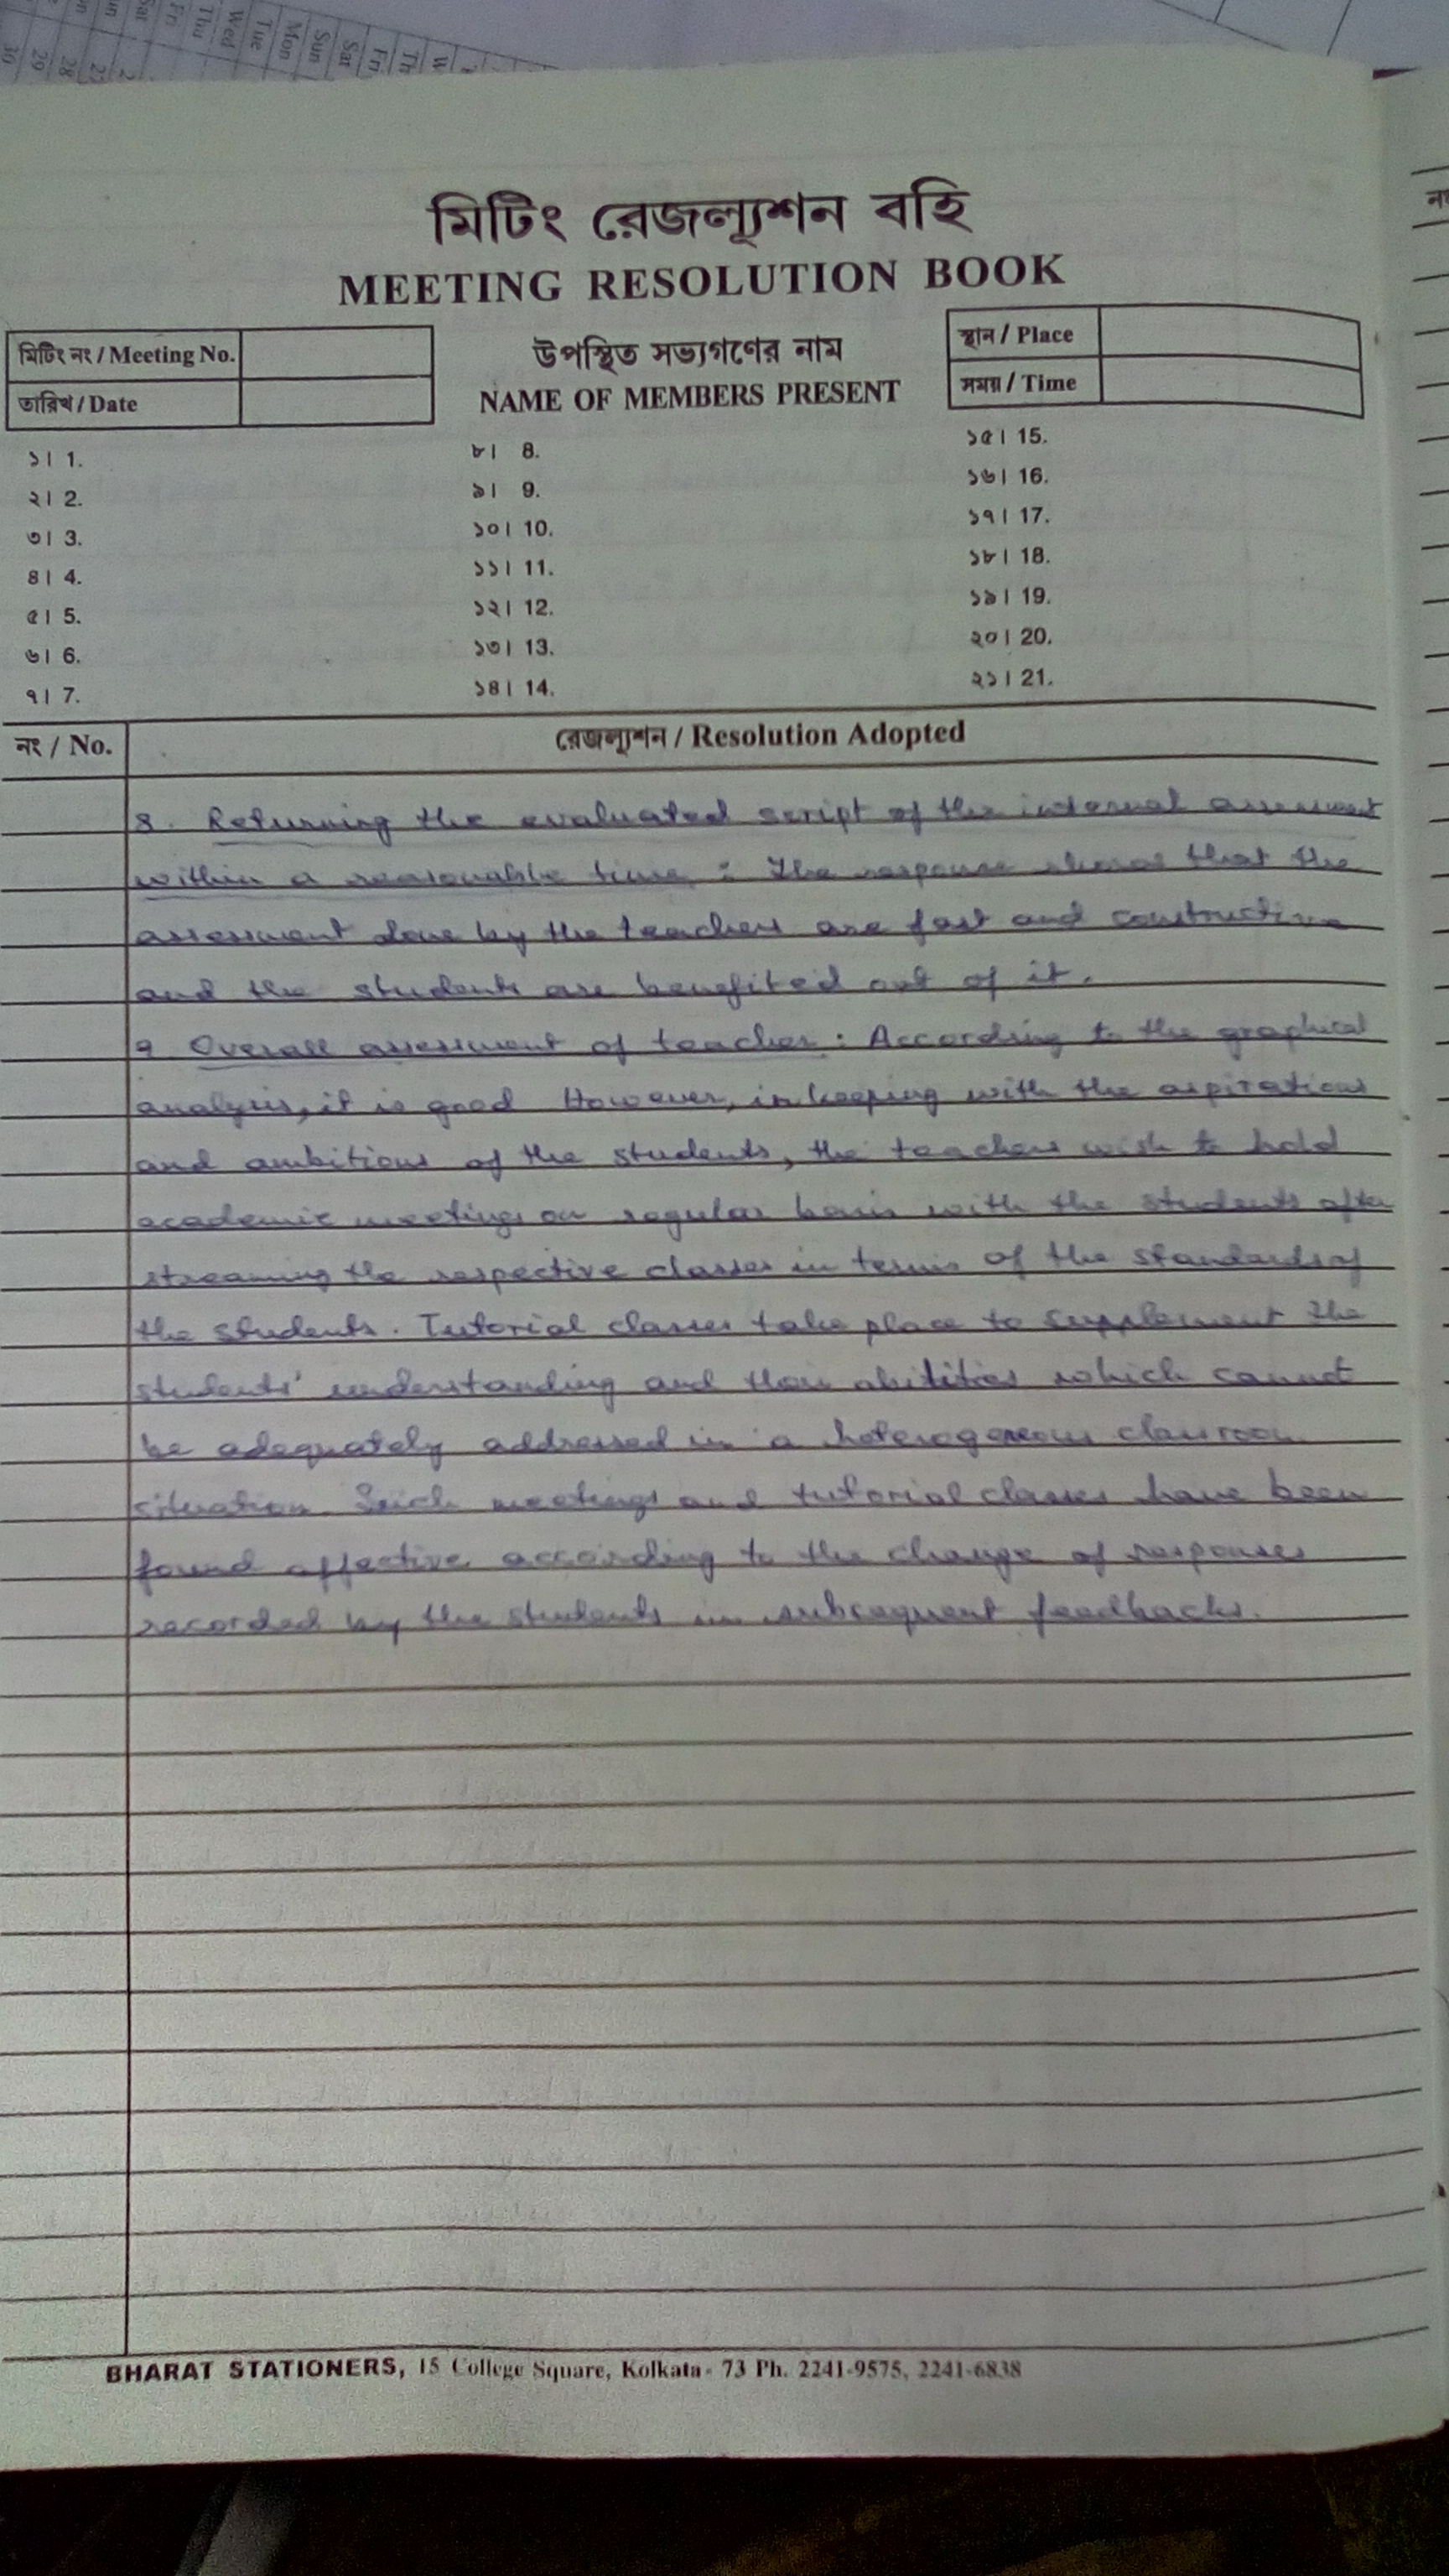 Sat
Fri
Thu
Wed
Tue
Mon
Sun
Sat
Fri
Th
W
30
29
28
মিটিং রেজল্যূশন বহি
MEETING RESOLUTION BOOK
মিটিং নং / Meeting No.
তারিখ / Date
উপস্থিত সভ্যগণের নাম
NAME OF MEMBERS PRESENT
স্থান / Place
সময় / Time
১। 1.
২। 2.
৩। 3.
৪। 4.
৫। 5.
৬। 6.
৭। 7.
৮। 8.
৯। 9.
১০। 10.
১১। 11.
১২। 12.
১৩। 13.
১৪। 14.
১৫। 15.
১৬। 16.
১৭। 17.
১৮। 18.
১৯। 19.
২০। 20.
২১। 21.
নং / No.
রেজল্যূশন / Resolution Adopted
8. Returning the evaluated script of the internal assessment
within a reasonable time : The response shows that the
assessment done by the teachers are fast and constructive
and the students are benefited out of it.
9. Overall assessment of teacher : According to the graphical
analysis, it is good However, in keeping with the aspirations
and ambitions of the students, the teachers wish to hold
academic meetings on regular basis with the students after
streaming the respective classes in terms of the standards of
the students. Tutorial classes take place to supplement the
students' understanding and their abilities which cannot
be adequately addressed in a heterogeneous classroom
situation. Such meetings and tutorial classes have been
found effective according to the change of responses
recorded by the students in subsequent feedbacks.
BHARAT STATIONERS, 15 College Square, Kolkata - 73 Ph. 2241-9575, 2241-6838